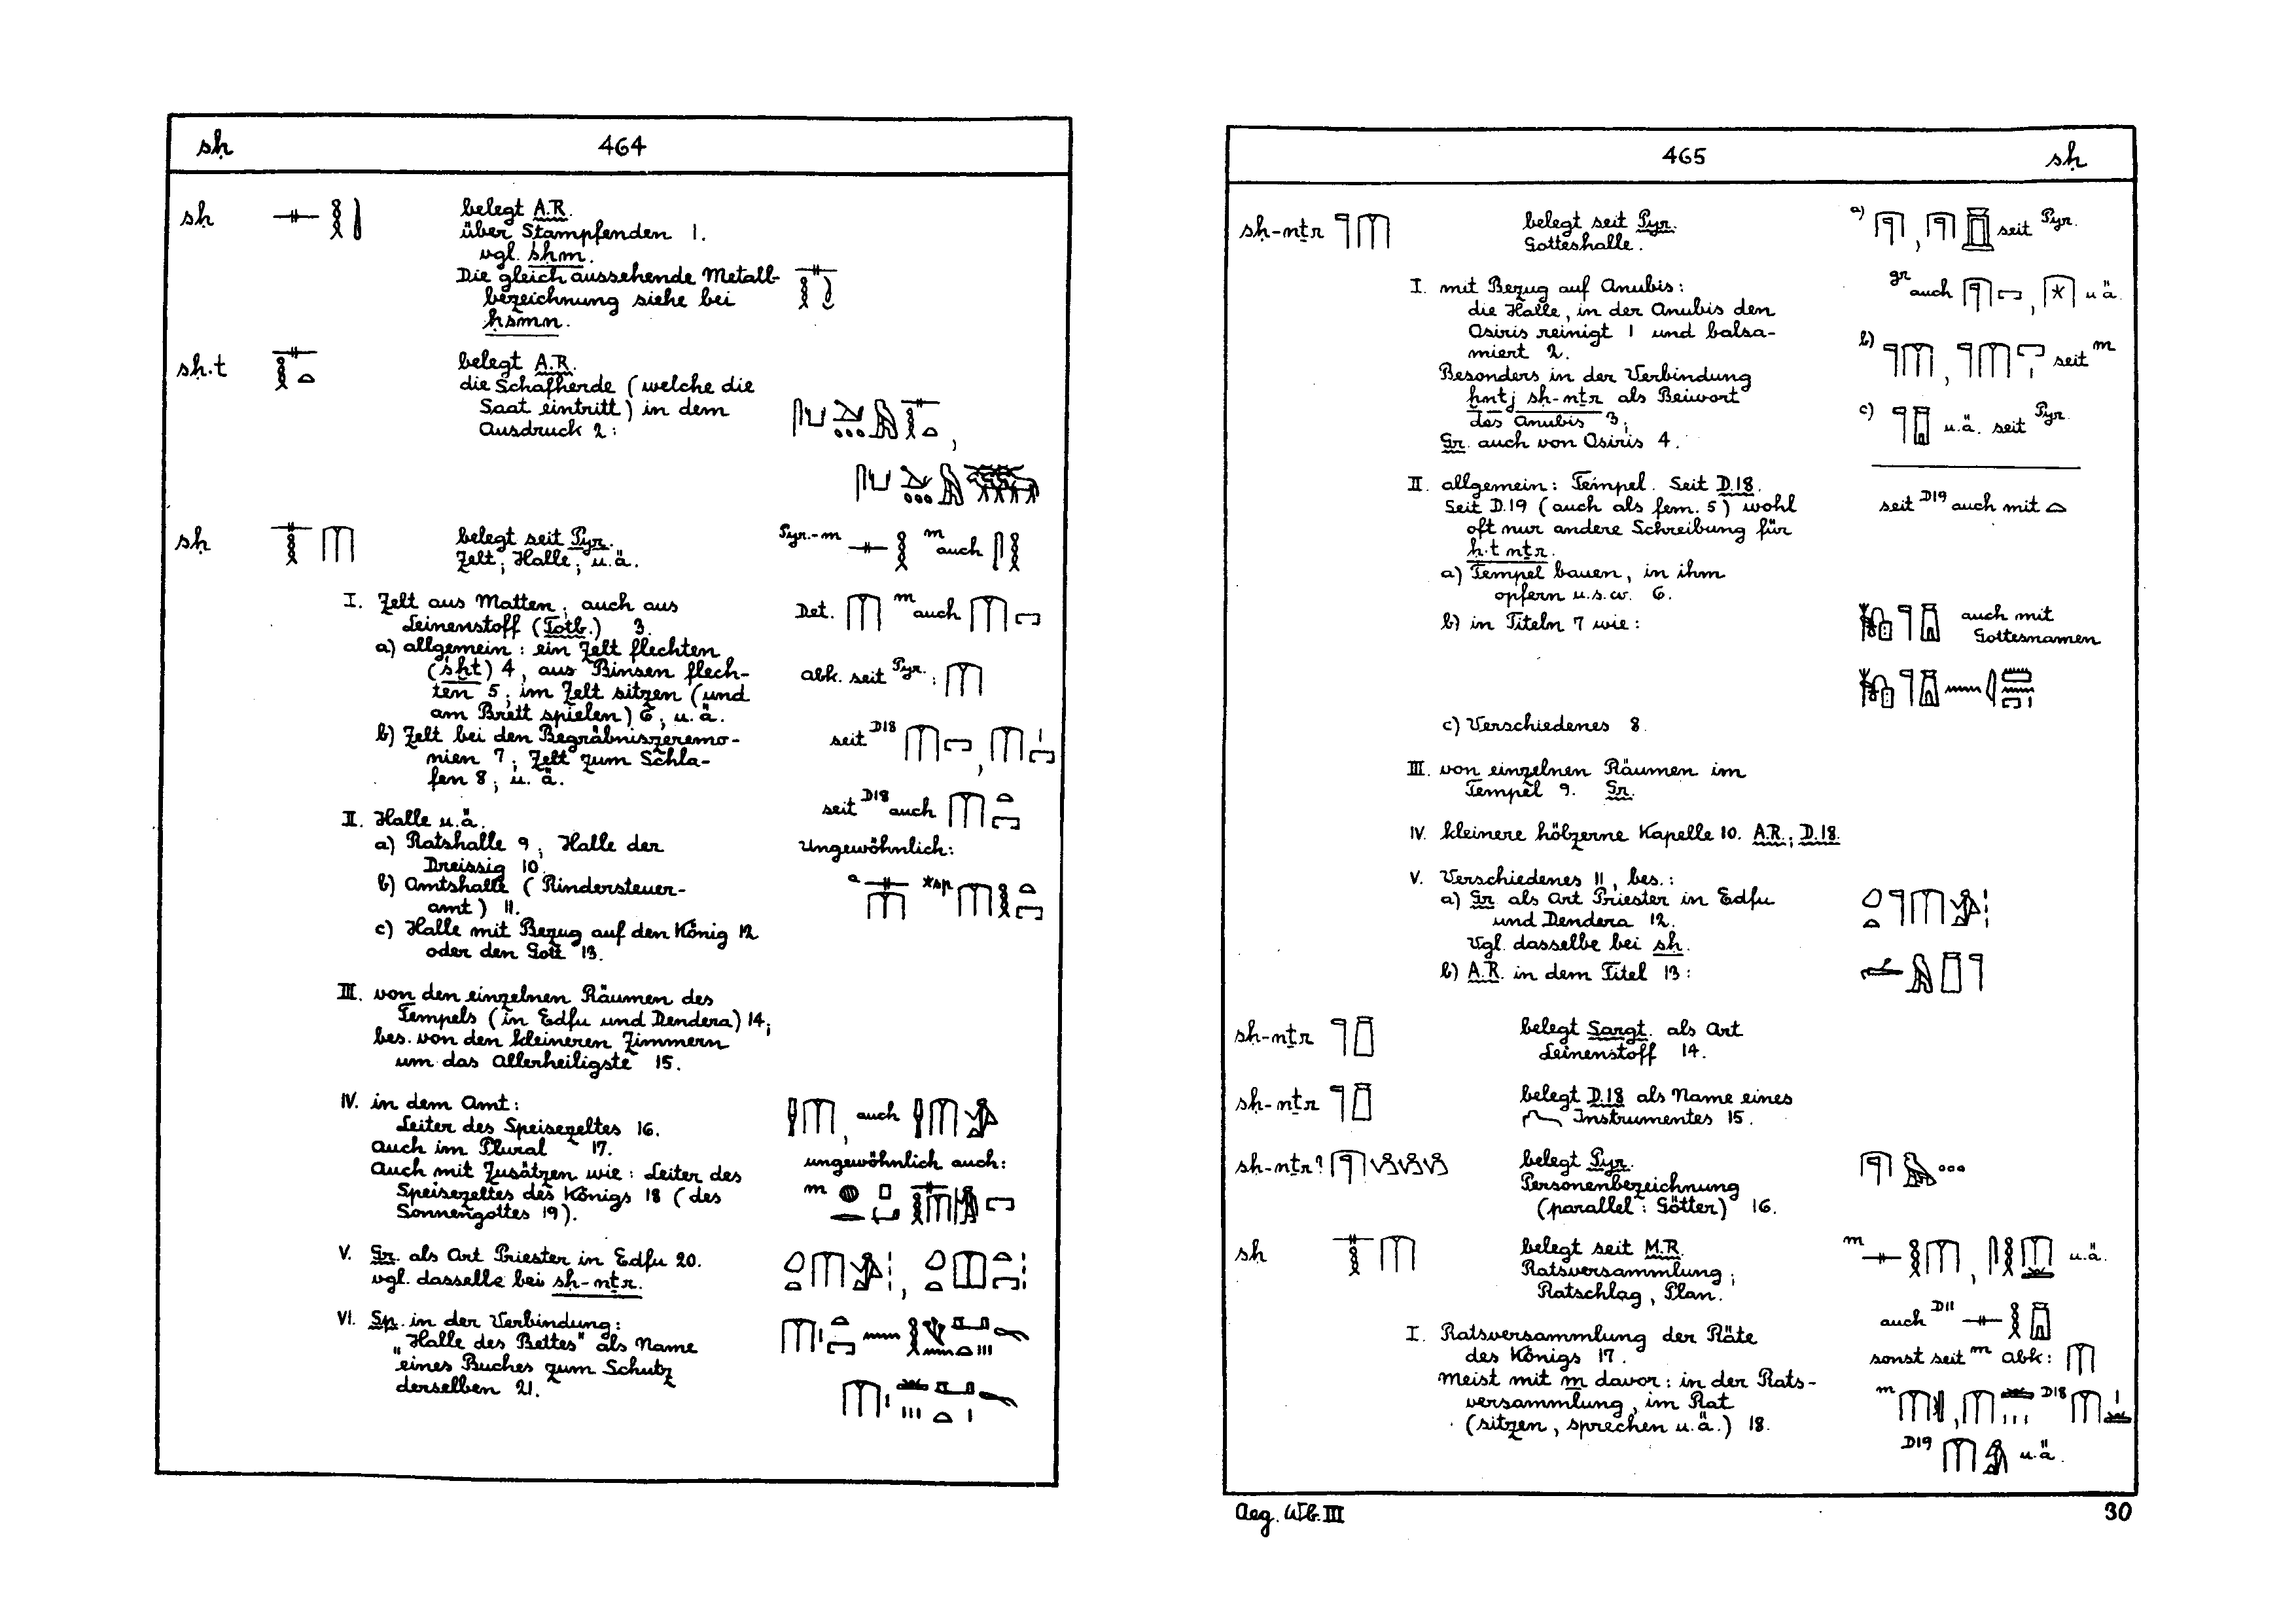 sḥ 464
sḥ
belegt A.R.
über Stampfenden 1.
vgl. sḥm.
Die gleich aussehende Metall-
bezeichnung siehe bei
ḥsmn.
sḥ.t
belegt A.R.
die Schafherde (welche die
Saat eintritt) in dem
Ausdruck 2:
sḥ
belegt seit Pyr.
Zelt; Halle; u.ä.
Pyr.-m m auch
I. Zelt aus Matten; auch aus
Leinenstoff (Totb.) 3.
Det. m auch
a) allgemein: ein Zelt flechten
(sḫt) 4, aus Binsen flech-
ten 5; im Zelt sitzen (und
am Brett spielen) 6; u.ä.
abk. seit Pyr.:
b) Zelt bei den Begräbniszeremo-
nien 7; Zelt zum Schla-
fen 8; u.ä.
seit D18
seit D18 auch
II. Halle u.ä.
a) Ratshalle 9; Halle der
Dreissig 10.
Ungewöhnlich:
a *sp
b) Amtshalle (Rindersteuer-
amt) 11.
c) Halle mit Bezug auf den König 12
oder den Gott 13.
III. von den einzelnen Räumen des
Tempels (in Edfu und Dendera) 14;
bes. von den kleineren Zimmern
um das Allerheiligste 15.
IV. in dem Amt:
Leiter des Speisezeltes 16.
auch
Auch im Plural 17.
Auch mit Zusätzen wie: Leiter des
Speisezeltes des Königs 18 (des
Sonnengottes 19).
ungewöhnlich auch:
m
V. Gr. als Art Priester in Edfu 20.
vgl. dasselbe bei sḥ-nṯr.
VI. Sp. in der Verbindung:
„Halle des Bettes" als Name
eines Buches zum Schutz
derselben 21.
465 sḥ
sḥ-nṯr
belegt seit Pyr.
Gotteshalle.
a) , seit Pyr.
gr auch , u.ä.
I. mit Bezug auf Anubis:
die Halle, in der Anubis den
Osiris reinigt 1 und balsa-
miert 2.
b) , seit m
Besonders in der Verbindung
ḫntj sḥ-nṯr als Beiwort
des Anubis 3;
Gr. auch von Osiris 4.
c) u.ä. seit Pyr.
II. allgemein: Tempel. Seit D.18.
Seit D.19 (auch als fem. 5) wohl
oft nur andere Schreibung für
ḥ.t nṯr.
seit D19 auch mit
a) Tempel bauen, in ihm
opfern u.s.w. 6.
b) in Titeln 7 wie:
auch mit
Gottesnamen
c) Verschiedenes 8.
III. von einzelnen Räumen im
Tempel 9. Gr.
IV. kleinere hölzerne Kapelle 10. A.R.; D.18.
V. Verschiedenes 11, bes.:
a) Gr. als Art Priester in Edfu
und Dendera 12.
Vgl. dasselbe bei sḥ.
b) A.R. in dem Titel 13:
sḥ-nṯr
belegt Sargt. als Art
Leinenstoff 14.
sḥ-nṯr
belegt D.18 als Name eines
Instrumentes 15.
sḥ-nṯr?
belegt Pyr.
Personenbezeichnung
(parallel: Götter) 16.
sḥ
belegt seit M.R.
Ratsversammlung;
Ratschlag, Plan.
m , u.ä.
auch D11
I. Ratsversammlung der Räte
des Königs 17.
sonst seit m abk:
meist mit m davor: in der Rats-
versammlung, im Rat
(sitzen, sprechen u.ä.) 18.
m , D18
D19 u.ä.
Aeg. Wb. III 30